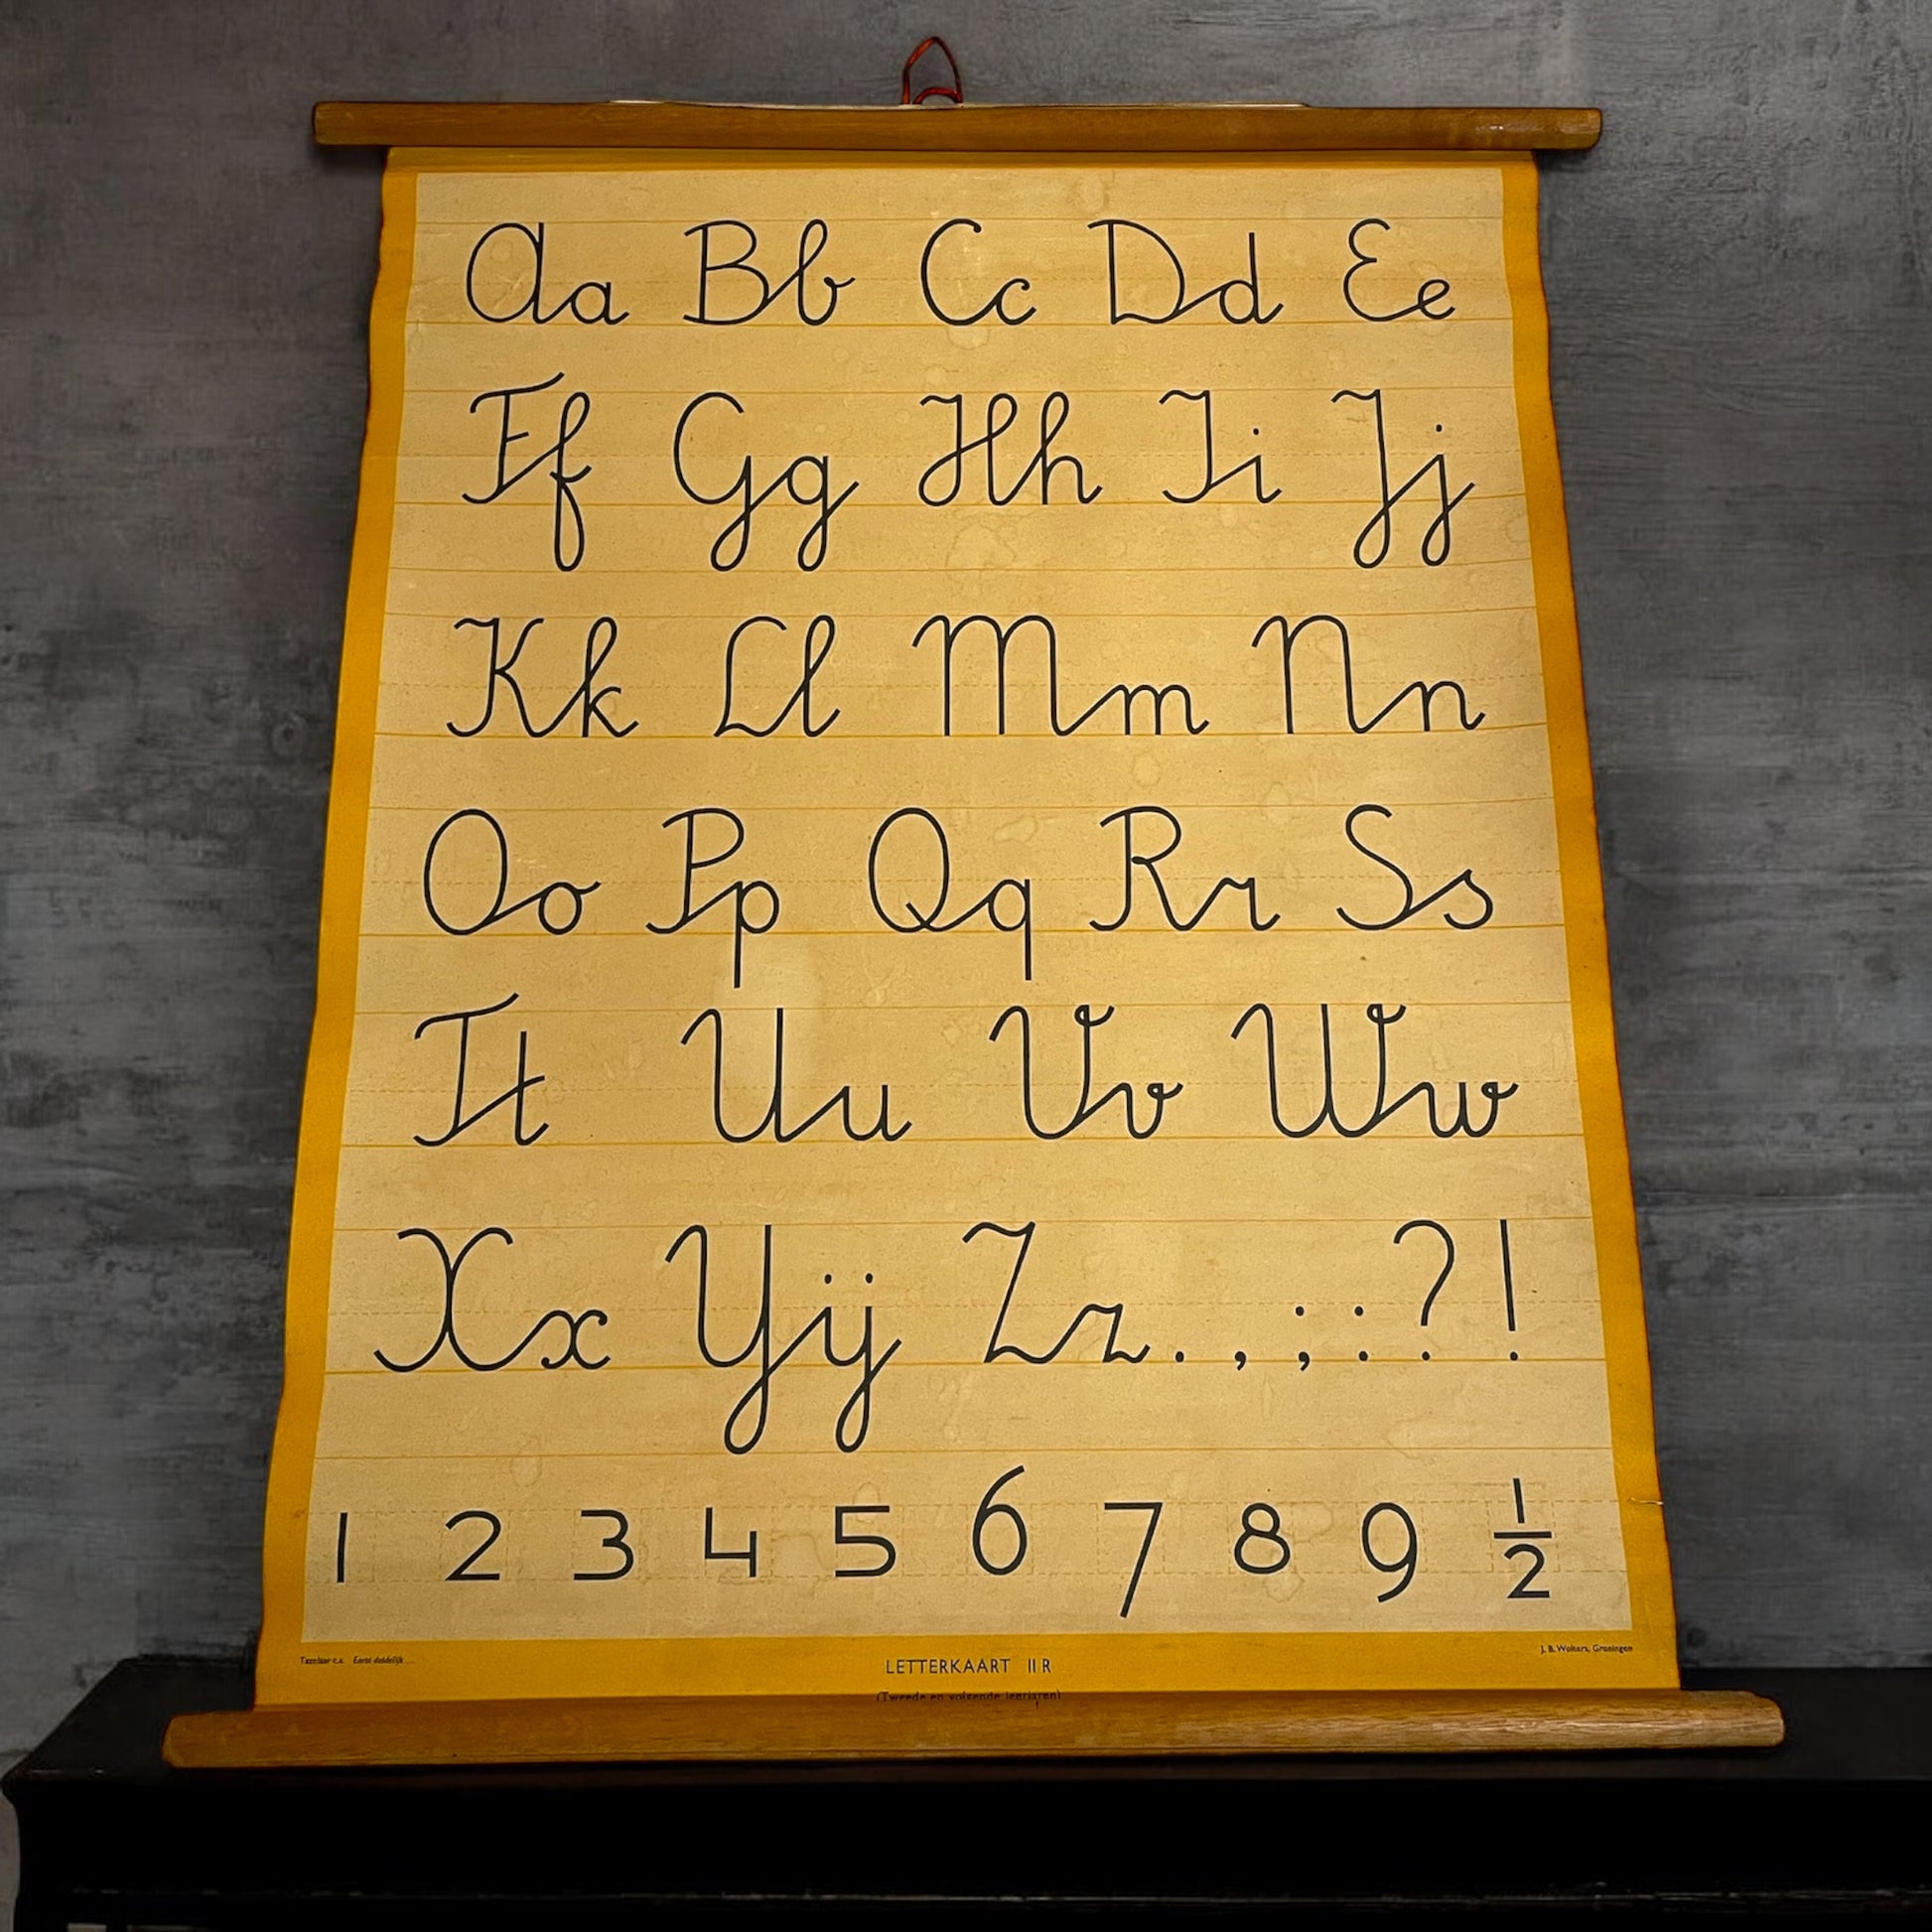 Aa Bb Cc Dd Ee
Ff Gg Hh Ii Jj
Kk Ll Mm Nn
Oo Pp Qq Rr Ss
Tt Uu Vv Ww
Xx Yij Zz . , ; : ? !
1 2 3 4 5 6 7 8 9 ½
Tazelaar e.a. Eerst duidelijk ....
J. B. Wolters, Groningen
LETTERKAART II R
(Tweede en volgende leerjaren)